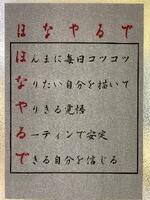 ほなやるで
ほんまに毎日コツコツ
なりたい自分を描いて
やりきる覚悟
ルーティンで安定
できる自分を信じる